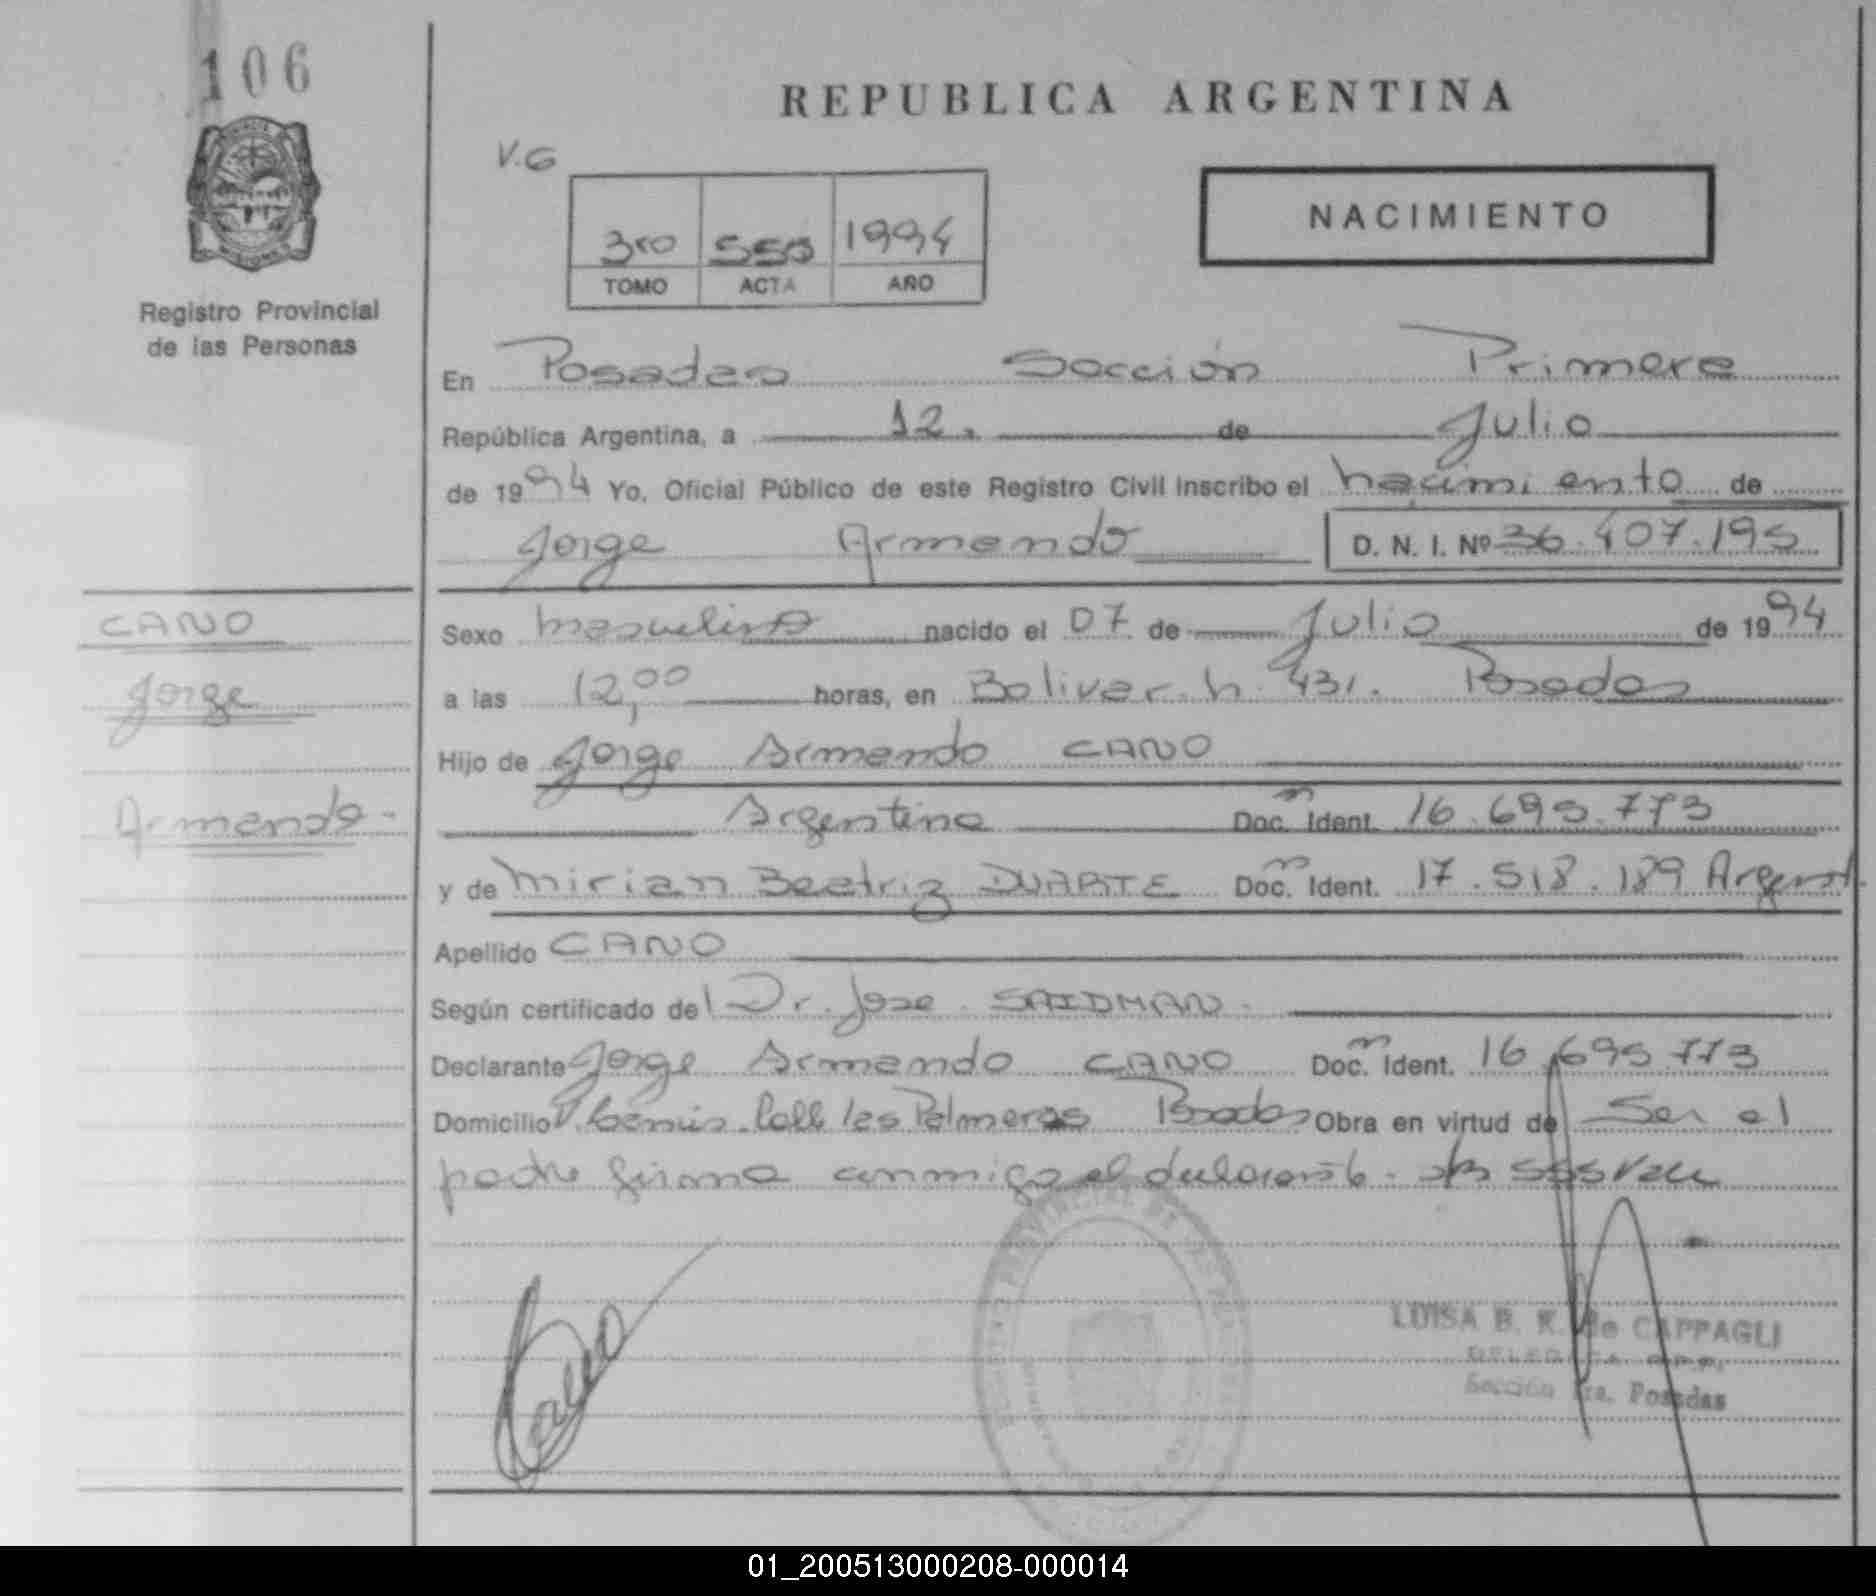 106
REPUBLICA ARGENTINA
V.G
NACIMIENTO
3ro 1994
TOMO ACTA AÑO
Registro Provincial
de las Personas
En Posadas Sección Primera
República Argentina, a 12. de Julio
de 1994 Yo, Oficial Público de este Registro Civil Inscribo el nacimiento de
Jorge Armando D. N. I. Nº 36.407.195
CANO
Jorge
Armando-
Sexo masculino nacido el 07 de Julio de 1994
a las 12,00 horas, en Bolivar. n. 431. Posadas
Hijo de Jorge Armando CANO
Argentino Doc. Ident. 16.695.773
y de Mirian Beatriz DUARTE Doc. Ident. 17.518.189 Argent.
Apellido CANO
Según certificado del Dr. Jose SAIDMAN.
Declarante Jorge Armando CANO Doc. Ident. 16.695.773
Domicilio las Palmeras Posadas Obra en virtud de Ser el
padre firma conmigo el
Cano
LUISA B. K. de CAPPAGLI
DELEGADA R.P.P.
Sección 1ra. Posadas
01_200513000208-000014